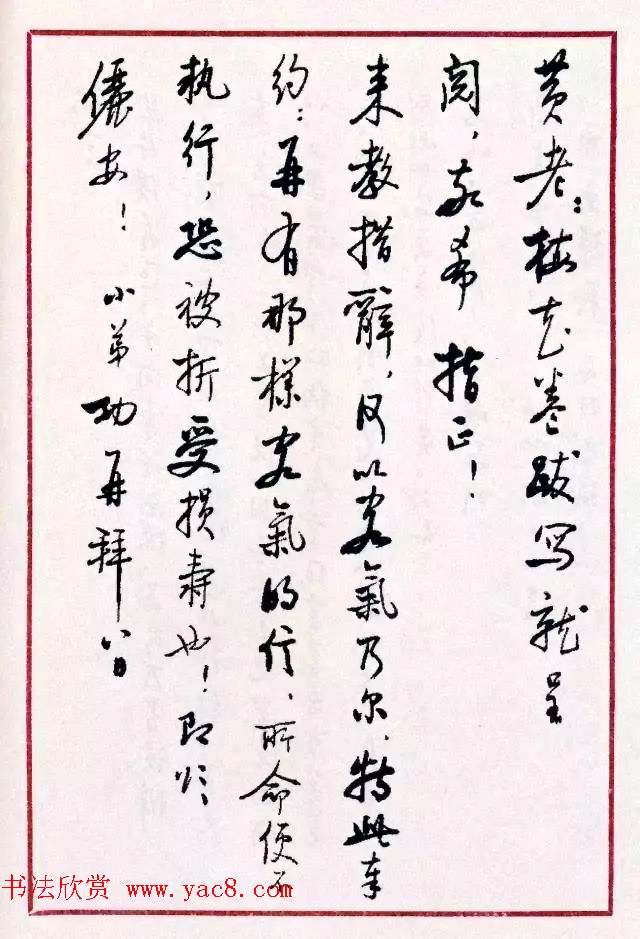 黄老：梅花卷跋写就呈
阅，敬希指正！
来教措辞，何以客氣乃尔，特此奉
约：再有那樣客氣的信，所命便不
执行，恐被折受损寿也！即颂
儷安！
小弟功再拜 八日
书法欣赏 www.yac8.com